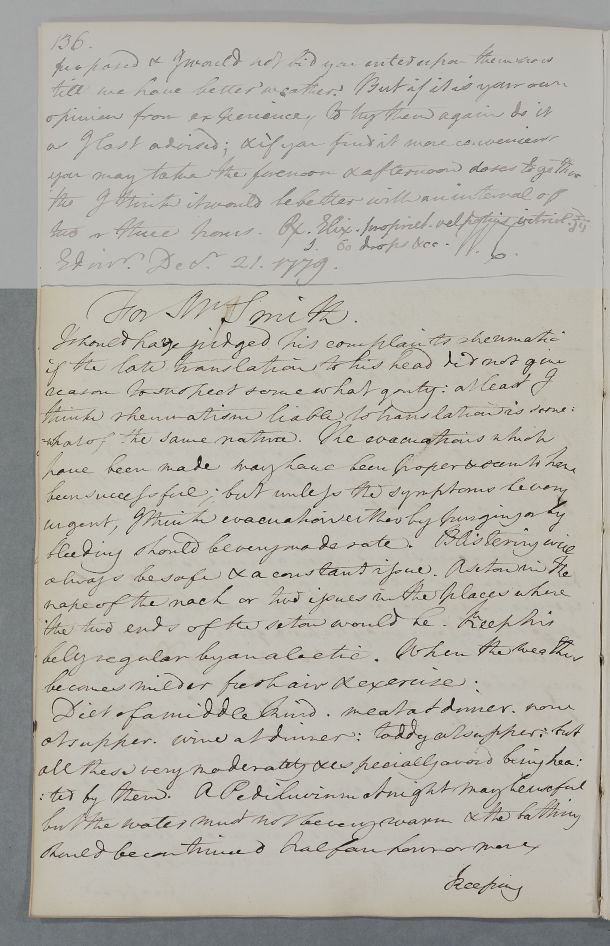 136.
proposed & I would not bid you enter upon them
till we have better weather. But if it is your own
opinion from experience, to try them again do it
as I last advised; & if you find it more convenient
you may take the forenoon & afternoon doses together
tho I think it would be better with an interval of
two or three hours. Rx. Elix. propriet. vel potius vitriol.
60 drops &cc.
Edinr. Decr. 21. 1779.
For Mr Smith.
I should have judged his complaints rheumatic
if the late translation to his head did not give
reason to suspect somewhat gouty: at least I
think rheumatism liable to translation is some:
:what of the same nature. The evacuations which
have been made may have been proper & seem to have
been successful; but unless the symptoms be very
urgent, I think evacuation either by purging or by
bleeding should be very moderate. Blistering will
always be safe & a constant issue. A seton in the
nape of the neck or two issues in the places where
the two ends of the seton would be. Keep his
bely regular by an
When the weather
becomes milder fresh air & exercise:
Diet of a middle kind. meat at dinner. none
at supper. wine at dinner: toddy at supper: but
all these very moderately & especially avoid being hea:
:ted by them. A Pediluvium at night may be useful
but the water must not be very warm & the bathing
should be continued half an hour or more
Keeping